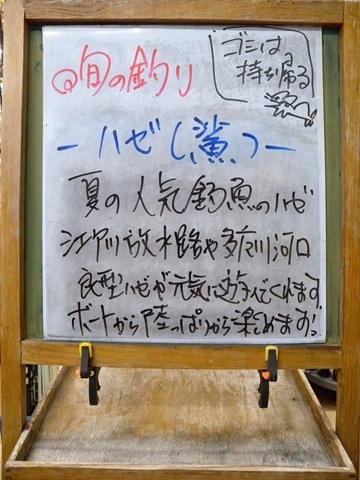 ◎旬の釣り
ゴミは
持ち帰る
ーハゼ(鯊)ー
夏の人気釣魚のハゼ
江戸川放水路や多摩川河口
良型ハゼが元気に遊んでくれます。
ボートから陸っぱりから楽しめます。